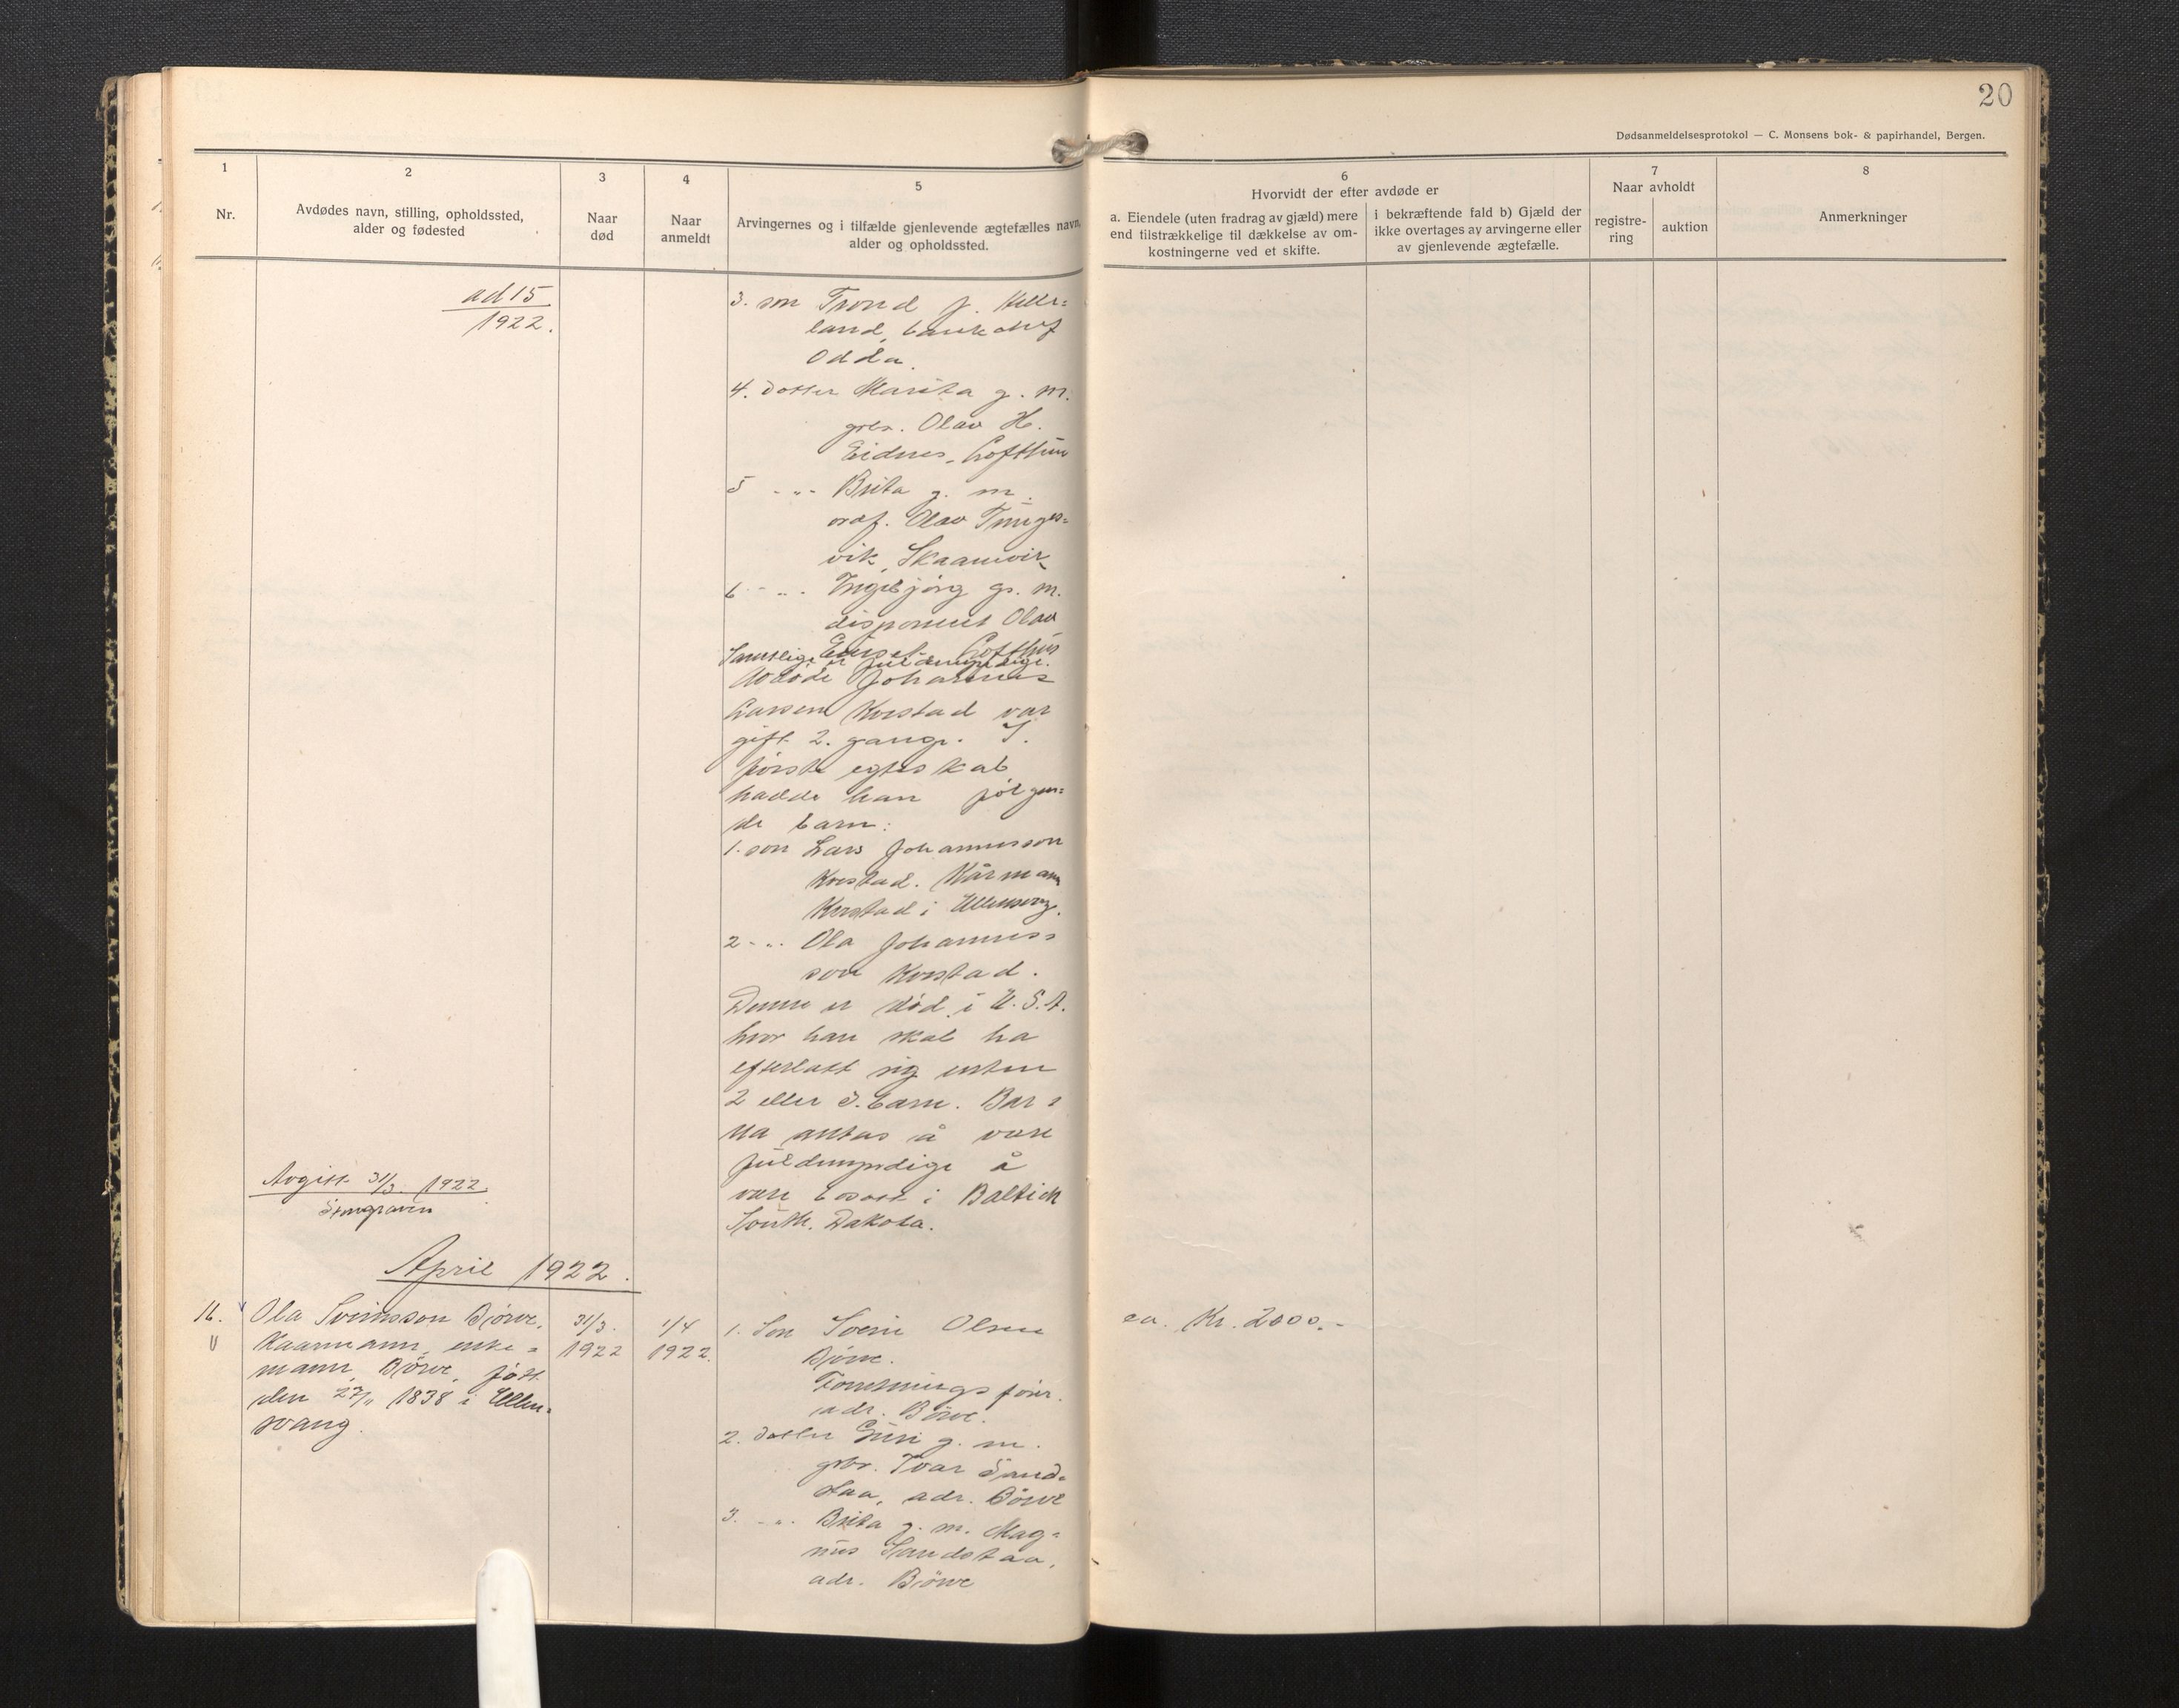 20
Dødsanmeldelsesprotokol — C. Monsens bok- & papirhandel, Bergen.
1
Nr.
2
Avdødes navn, stilling, opholdssted,
alder og fødested
3
Naar
død
4
Naar
anmeldt
5
Arvingernes og i tilfælde gjenlevende ægtefælles navn,
alder og opholdssted.
6
Hvorvidt der efter avdøde er
a. Eiendele (uten fradrag av gjæld) mere
end tilstrækkelige til dækkelse av om-
kostningerne ved et skifte.
i bekræftende fald b) Gjæld der
ikke overtages av arvingerne eller
av gjenlevende ægtefælle.
7
Naar avholdt
registre-
ring
auktion
8
Anmerkninger
ad 15
1922.
3. son Trond J.
land, bankchef
Odda.
4. Dotter Marita g. m.
grbr. Olav H.
Eidnes, Lofthus
5 -"- Brita g. m.
ordf. Olav
vik, Skaanevik
6 -"- Ingebjørg g. m.
disponent Olav
Lofthus
Samtlige er fuldmyndige.
Avdøde Johannes
Larsen Kvestad var
gift 2. gange. I
første egteskab
hadde han følgen=
de barn:
1. son Lars Johannesson
Kvestad. Kårmann
Kvestad i Ullensvang.
2 -"- Ola Johannes=
son Kvestad.
Denne er død i U.S.A.
hvor han skal ha
efterlatt sig enten
2 eller 3. barn. Bar=
na antas å være
fuldmyndige å
være bosatt i Baltick
South. Dakota.
Avgitt 31/3. 1922.
April 1922.
16.
Ola Sveinsson Børve.
Kaarmann, enke=
mann, Børve, født
den 27/11 1838 i Ullen=
svang.
31/3.
1922
1/4
1922.
1. Son Svein Olsen
Børve.
Forretningsfører.
adr. Børve.
2. Dotter Guri g. m.
grbr. Ivar Sand=
staa, adr. Børve
3. -"- Brita g. m. Mag=
nus Sandstaa,
adr. Børve
ca. Kr. 2000.-